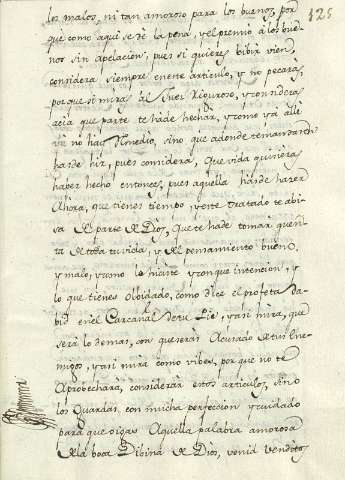 125
los malos, ni tan amoroso para los buenos, por
que como aqui se dê la pena, y el premio â los bue
nos sin apelacion, pues si quieres bibir vien,
considera siempre eneste articulo, y no pecaras,
porque si miras âl Juez Riguroso, y consideras
acia que parte te hâde hechar, y como ya alle
va no hay Remedio, sino que adonde temandaren
hasde hir, pues considera, Que vida quisieras
haber hecho entonces, pues aquella hâsde hazer
Ahora, que tienes tiempo, y este tratado te abi
sa de parte de Dios, Que te hade tomar quen
ta de toda tu vida, y del pensamiento buen,
y malo, y como lo hiciste y con que intencion, y
lo que tienes olbidado, como dice el profeta Da
bid en el Carcañal de tu Pie, y asi mira, que
serâ lo demas, con que seras Acusado de tus Ene
migos, y asi mira como vibes, por que no te
Aprobecharâ, considerar estos articulos, sino
los Guardas, con mucha perfeccion y cuidado
para que oigas Aquella palabra amorosa
de la boca Dibina de Dios, venid venditos